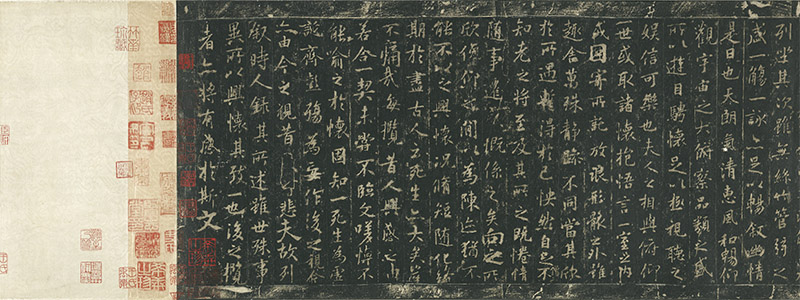 列坐其次雖無絲竹管弦之
盛一觴一詠亦足以暢叙幽情
是日也天朗氣清惠風和暢仰
觀宇宙之大俯察品類之盛
所以遊目騁懷足以極視聽之
娛信可樂也夫人之相與俯仰
一世或取諸懷抱悟言一室之內
或因寄所託放浪形骸之外雖
趣舍萬殊靜躁不同當其欣
於所遇蹔得於己怏然自足不
知老之將至及其所之既惓情
隨事遷感慨係之矣向之所
欣俛仰之間以為陳迹猶不
能不以之興懷況脩短隨化終
期於盡古人云死生亦大矣豈
不痛哉每攬昔人興感之由
若合一契未嘗不臨文嗟悼不
能喻之於懷固知一死生為虛
誕齊彭殤為妄作後之視今
亦由今之視昔悲夫故列
叙時人錄其所述雖世殊事
異所以興懷其致一也後之攬
者亦將有感於斯文